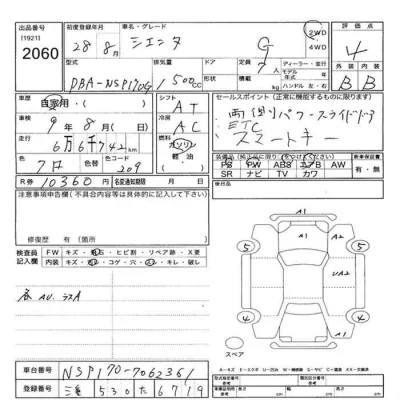 出品番号
[1921]
2060
初度登録年月
28年8月
車名・グレード
シエンタ
G
2WD
4WD
評価点
4
型式
DBA-NSP170G
排気量
1500cc
ドア
形状
定員
7人
積載
ディーラー・並行
モデル年式
ハンドル 左・右
外装
内装
B
B
車歴
自家用・( )
車検
9年8月
走行
6万6千742km
色
クロ
色替
カラーコード
209
シフト
AT
冷房
AC
燃料
ガソリン
軽油
( )
セールスポイント(正常に機能するものに限ります)
両側パワースライドドア
ETC
スマートキー
PS PW ABS エアB AW
SR ナビ TV カワ
新車保証書
有・無
R券
10360円
名変通知期限
月 日
後日品
注意事項申告欄(不具合等は具体的に記入して下さい)
修復歴 有(箇所 )
検査員記入欄
FW キズ・飛石・ヒビ割・リペア跡・X要
内装 キズ・コゲ・穴・キレ・破レ
A1
A1
A1
UA2
5
5
4
4
スペア
車台番号
NSP170-7062361
登録番号
三重 530 た 6719